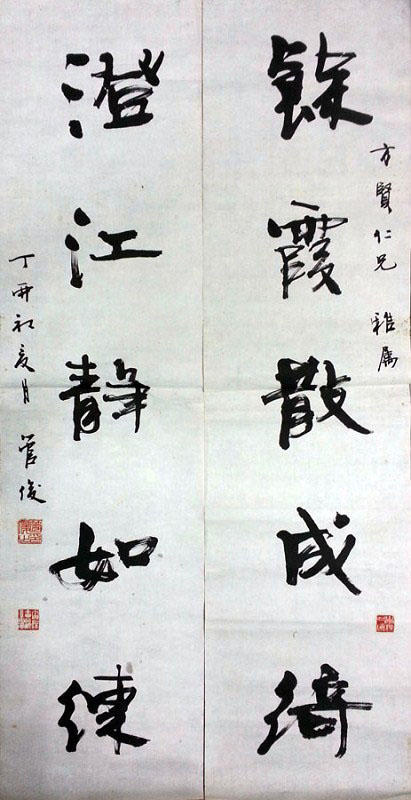 餘霞散成綺
方賢仁兄 雅屬
澄江静如練
丁亥初夏月 管俊